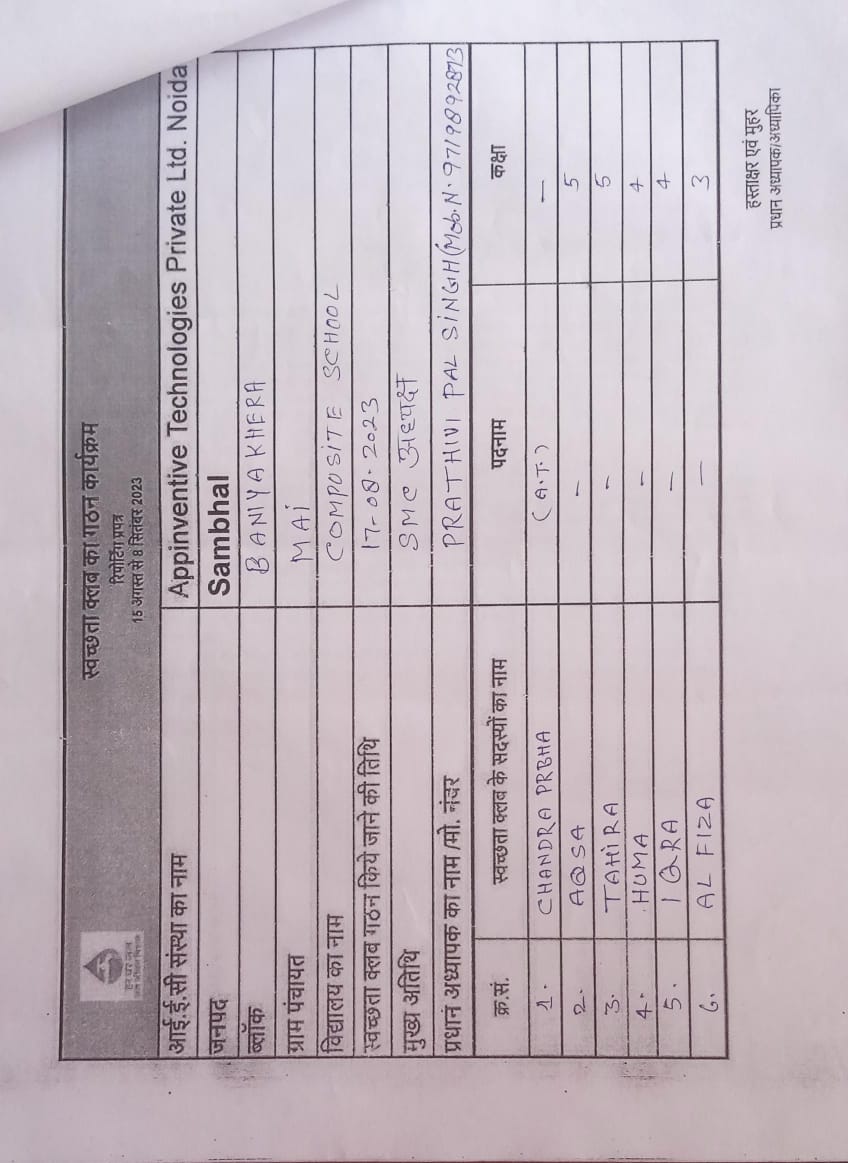 स्वच्छता क्लब का गठन कार्यक्रम
रिपोर्टिंग प्रपत्र
15 अगस्त से 8 सितंबर 2023
हर घर जल
आई.ई.सी संस्था का नाम Appinventive Technologies Private Ltd. Noida
जनपद Sambhal
ब्लॉक BANIYAKHERA
ग्राम पंचायत MAI
विद्यालय का नाम COMPOSITE SCHOOL
स्वच्छता क्लब गठन किये जाने की तिथि 17-08-2023
मुख्य अतिथि SMC अध्यक्ष
प्रधान अध्यापक का नाम /मो. नंवर PRATHIVI PAL SINGH (Mob.N. 9719892873
क्र.सं. स्वच्छता क्लब के सदस्यों का नाम पदनाम कक्षा
1. CHANDRA PRBHA (A.T.) –
2. AQSA – 5
3. TAHIRA – 5
4. HUMA – 4
5. IQRA – 4
6. AL FIZA – 3
हस्ताक्षर एवं मुहर
प्रधान अध्यापक/अध्यापिका